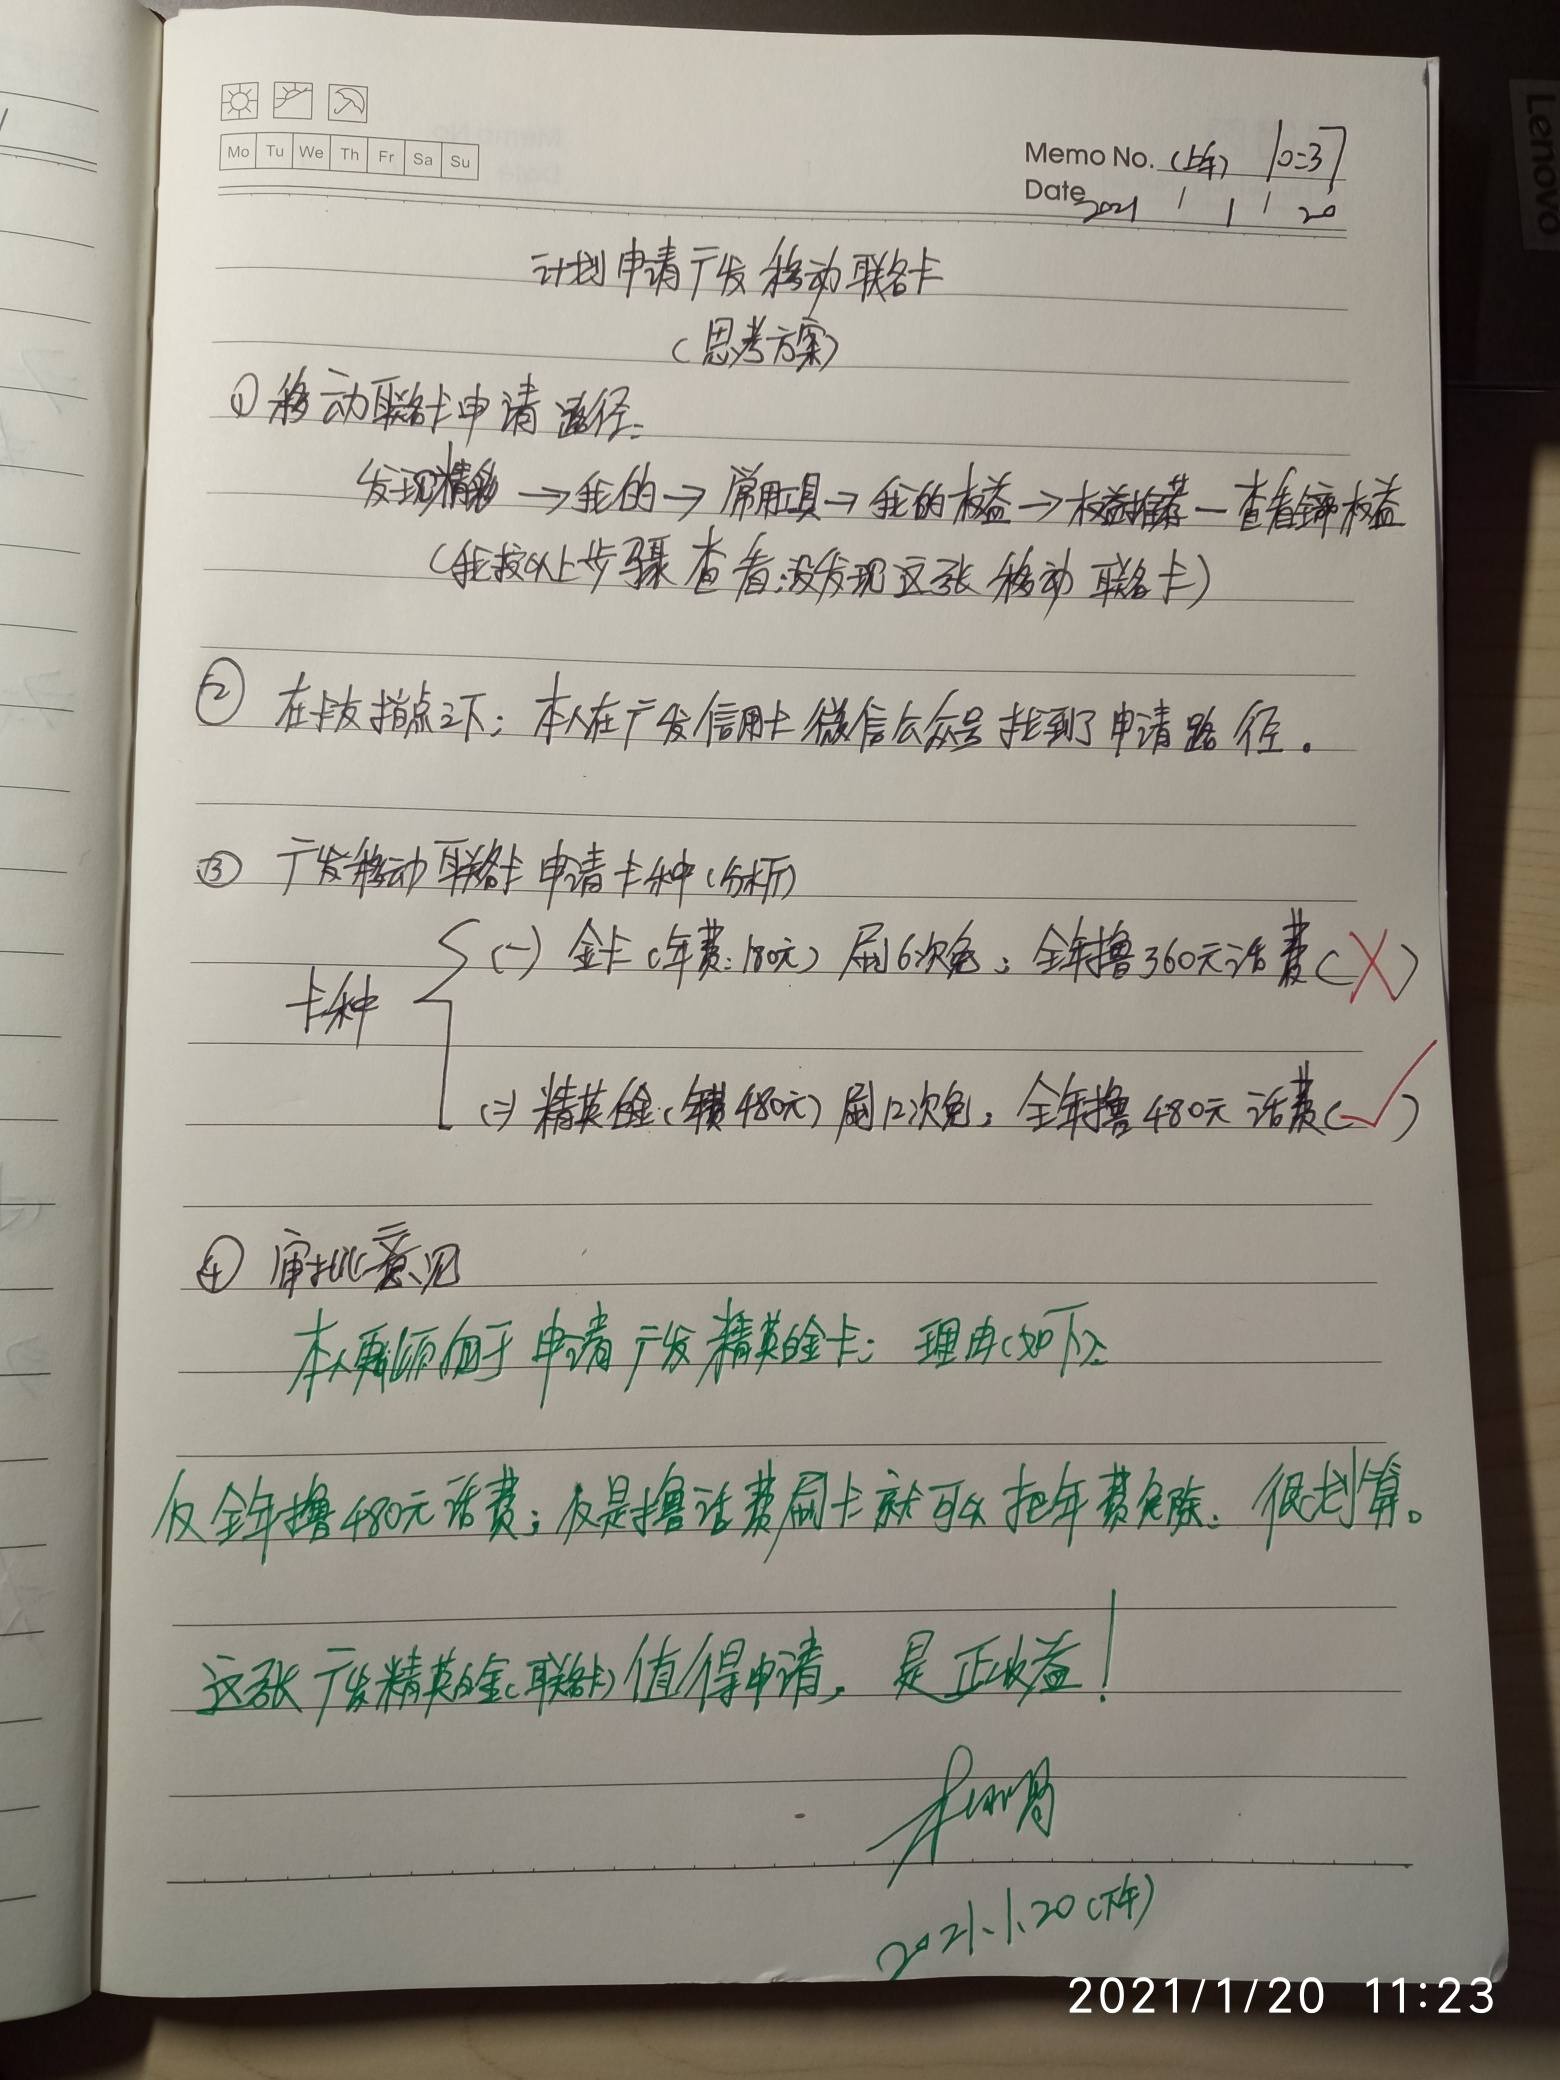 Mo Tu We Th Fr Sa Su
Memo No. (上午) 10:37
Date 2021 / 1 / 20
Lenovo
计划申请广发移动联名卡
(思考方案)
①移动联名卡申请路径:
发现精彩→我的→常用工具→我的权益→权益推荐—查看全部权益
(我按以上步骤查看;没发现这张移动联名卡)
② 在卡友指点之下;本人在广发信用卡微信公众号找到了申请路径。
③ 广发移动联名卡申请卡种(分析)
卡种
(一) 金卡(年费:180元)刷6次免;全年撸360元话费(X)
(二) 精英白金(年费480元)刷12次免;全年撸480元话费(✓)
④ 审批意见
本人更倾向于申请广发精英白金卡;理由(如下):
仅全年撸480元话费;仅是撸话费刷卡就可以把年费免除. 很划算。
这张广发精英白金(联名卡)值得申请,是正收益!
2021.1.20(下午)
2021/1/20 11:23